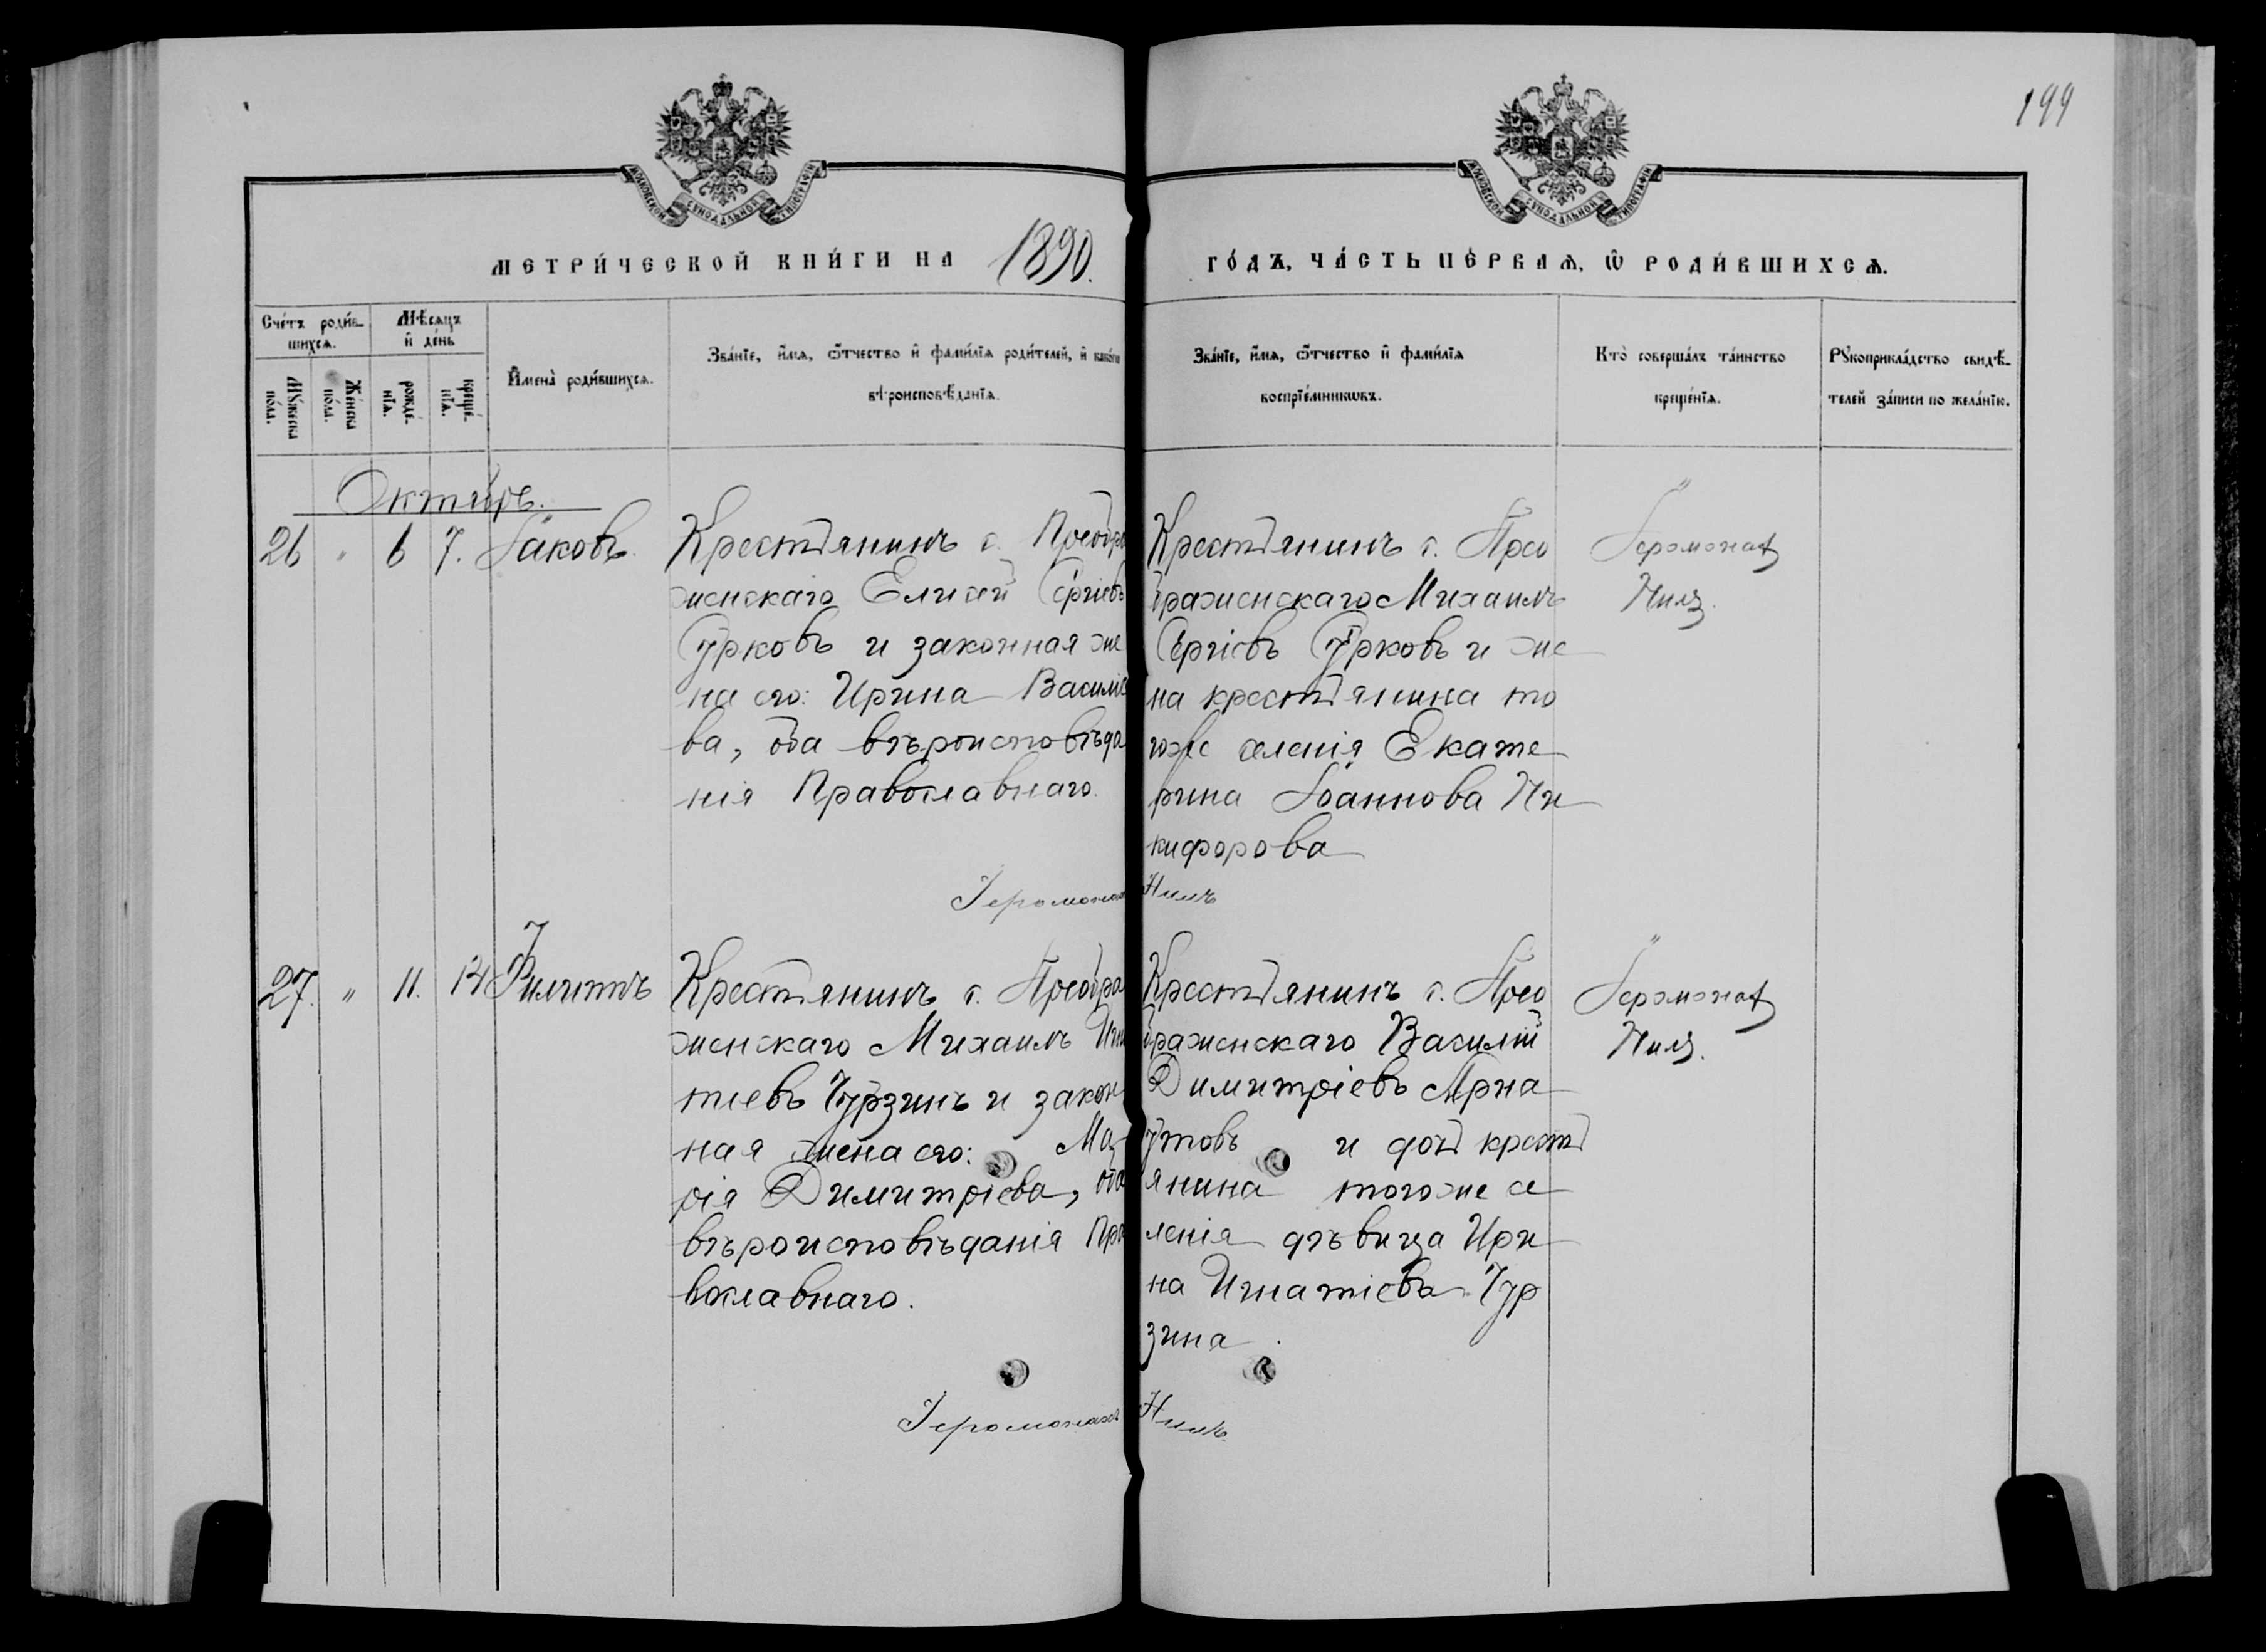 199
МОСКОВСКОЙ СѴНОДАЛЬНОЙ ТИПОГРАФІИ
МОСКОВСКОЙ СѴНОДАЛЬНОЙ ТИПОГРАФІИ
МЕТРИ́ЧЕСКОЙ КНИ́ГИ НА 1890. ГО́ДЪ, ЧА́СТЬ ПЕ́РВАѦ, Ѡ҆ РОДИ́ВШИХСѦ.
Сче́тъ роди́в-
шихсѧ.
Мѣ́сѧцъ
и҆ де́нь
Мꙋ́жеска
по́ла.
Же́нска
по́ла.
рожде́-
нїѧ.
креще́-
нїѧ.
И҆мена̀ роди́вшихсѧ.
Зва́нїе, и҆́мѧ, ѻ҆́тчество и҆ фами́лїѧ роди́телей, и҆ како́гѡ
вѣ́роисповѣ́данїѧ.
Зва́нїе, и҆́мѧ, ѻ҆́тчество и҆ фами́лїѧ
воспрїе́мникѡвъ.
Кто̀ соверша́лъ та́инство
креще́нїѧ.
Рꙋкоприкла́дство свидѣ́-
телей за́писи по жела́нїю.
Октябрь.
26 " 6 7. Іаковъ.
Крестьянинъ с. Преобра
женскаго Елисей Сергіевъ
Сурковъ и законная же
на его: Ирина Василіе
ва, оба вѣроисповѣда
нія Православнаго.
Крестьянинъ с. Прео
браженскаго Михаилъ
Сергіевъ Сурковъ и же
на крестьянина то
гоже селенія Екате
рина Іоаннова Ни
кифорова
Іеромонах
Нилъ.
Іеромонах Нилъ
27. " 11. 14 Филиппъ
Крестьянинъ с. Преобра
женскаго Михаилъ Игна
тіевъ Турзинъ и закон
ная жена его: Ма
рія Димитріева, оба
вѣроисповѣданія Пра
вославнаго.
Крестьянинъ с. Прео
браженскаго Василій
Димитріевъ Арна
утовъ и дочь кресть
янина тогоже се
ленія дѣвица Ири
на Игнатіева Тур
зина.
Іеромонах
Нилъ.
Іеромонахъ Нилъ